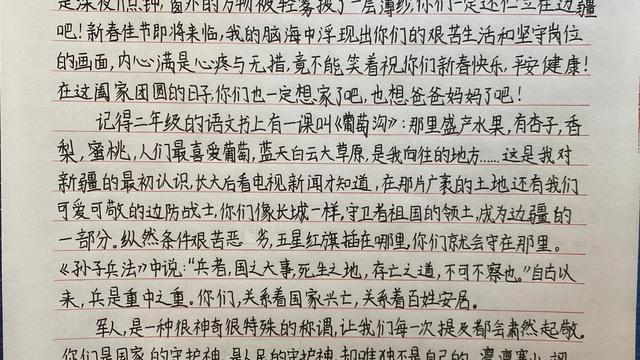 是深夜11点钟,窗外的万物被轻雾披了一层薄纱,你们一定还伫立在边疆
吧!新春佳节即将来临,我的脑海中浮现出你们的艰苦生活和坚守岗位
的画面,内心满是心疼与无措,竟不能笑着祝你们新春快乐,平安健康!
在这阖家团圆的日子,你们也一定想家了吧,也想爸爸妈妈了吧!
记得二年级的语文书上有一课叫《葡萄沟》:那里盛产水果,有杏子,香
梨,蜜桃,人们最喜爱葡萄,蓝天白云大草原,是我向往的地方……这是我对
新疆的最初认识,长大后看电视新闻才知道,在那片广袤的土地还有我们
可爱可敬的边防战士,你们像长城一样,守卫者祖国的领土,成为边疆的
一部分。纵然条件艰苦恶劣,五星红旗插在哪里,你们就会守在那里。
《孙子兵法》中说:“兵者,国之大事,死生之地,存亡之道,不可不察也。”自古以
来,兵是重中之重。你们,关系着国家兴亡,关系着百姓安居。
军人,是一种很神奇很特殊的称谓,让我们每一次提及都会肃然起敬。
你们是国家的守护神,是人民的守护神,却唯独不是自己的。凛凛寒